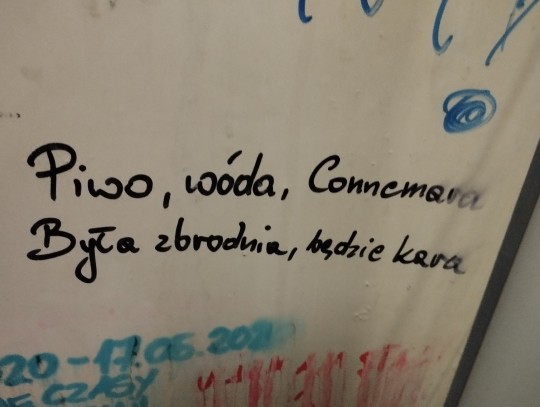 Piwo, wóda, Connemara
Była zbrodnia, będzie kara
20-17.06.202
CZASY